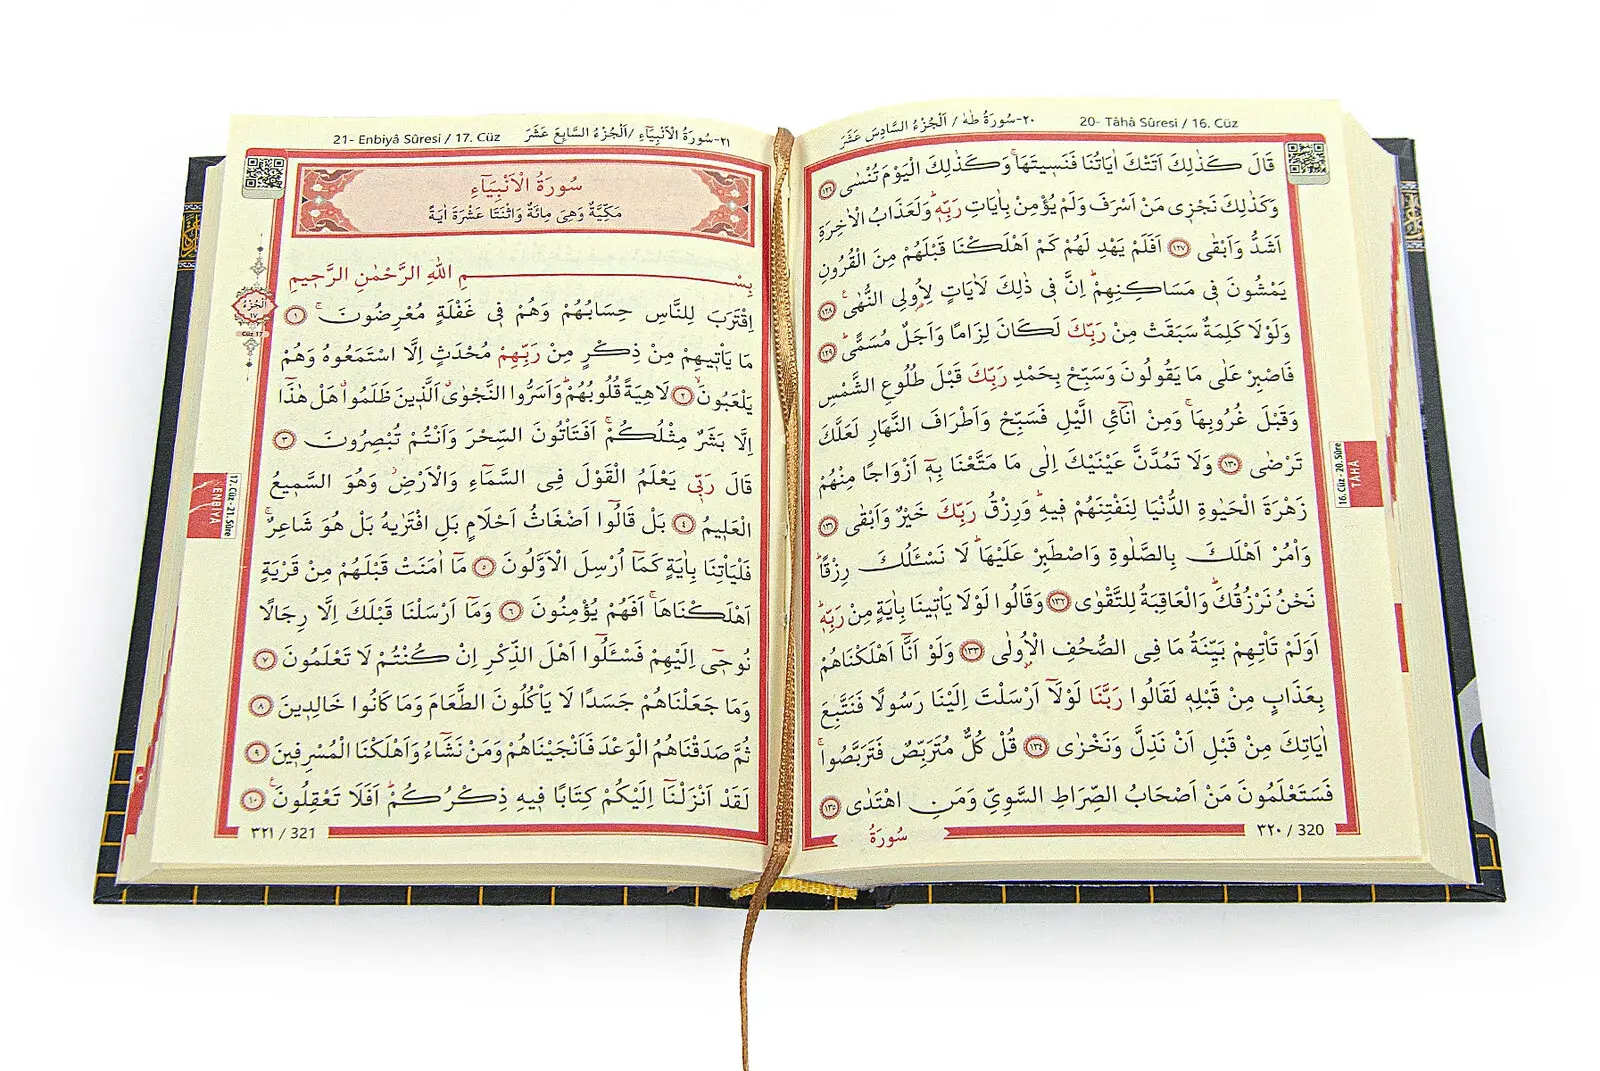 ٢٠-سُورَةُ طٰهٰ / اَلْجُزْءُ السَّادِسَ عَشَرَ
20- Tâhâ Sûresi / 16. Cüz
قَالَ كَذٰلِكَ اَتَتْكَ اٰيَاتُنَا فَنَسٖيتَهَاۚ وَكَذٰلِكَ الْيَوْمَ تُنْسٰى ١٢٦
وَكَذٰلِكَ نَجْزٖى مَنْ اَسْرَفَ وَلَمْ يُؤْمِنْ بِاٰيَاتِ رَبِّهٖۜ وَلَعَذَابُ الْاٰخِرَةِ
اَشَدُّ وَاَبْقٰى ١٢٧ اَفَلَمْ يَهْدِ لَهُمْ كَمْ اَهْلَكْنَا قَبْلَهُمْ مِنَ الْقُرُونِ
يَمْشُونَ فٖى مَسَاكِنِهِمْۜ اِنَّ فٖى ذٰلِكَ لَاٰيَاتٍ لِاُو۬لِى النُّهٰىۚ ١٢٨
وَلَوْلَا كَلِمَةٌ سَبَقَتْ مِنْ رَبِّكَ لَكَانَ لِزَامًا وَاَجَلٌ مُسَمًّىۜ ١٢٩
فَاصْبِرْ عَلٰى مَا يَقُولُونَ وَسَبِّحْ بِحَمْدِ رَبِّكَ قَبْلَ طُلُوعِ الشَّمْسِ
وَقَبْلَ غُرُوبِهَاۚ وَمِنْ اٰنَٓائِ الَّيْلِ فَسَبِّحْ وَاَطْرَافَ النَّهَارِ لَعَلَّكَ
تَرْضٰى ١٣٠ وَلَا تَمُدَّنَّ عَيْنَيْكَ اِلٰى مَا مَتَّعْنَا بِهٖٓ اَزْوَاجًا مِنْهُمْ
زَهْرَةَ الْحَيٰوةِ الدُّنْيَا لِنَفْتِنَهُمْ فٖيهِۜ وَرِزْقُ رَبِّكَ خَيْرٌ وَاَبْقٰى ١٣١
وَأْمُرْ اَهْلَكَ بِالصَّلٰوةِ وَاصْطَبِرْ عَلَيْهَاۜ لَا نَسْـَٔلُكَ رِزْقًاۜ
نَحْنُ نَرْزُقُكَۜ وَالْعَاقِبَةُ لِلتَّقْوٰى ١٣٢ وَقَالُوا لَوْلَا يَأْتٖينَا بِاٰيَةٍ مِنْ رَبِّهٖۜ
اَوَلَمْ تَأْتِهِمْ بَيِّنَةُ مَا فِى الصُّحُفِ الْاُو۫لٰى ١٣٣ وَلَوْ اَنَّٓا اَهْلَكْنَاهُمْ
بِعَذَابٍ مِنْ قَبْلِهٖ لَقَالُوا رَبَّنَا لَوْلَٓا اَرْسَلْتَ اِلَيْنَا رَسُولًا فَنَتَّبِعَ
اٰيَاتِكَ مِنْ قَبْلِ اَنْ نَذِلَّ وَنَخْزٰى ١٣٤ قُلْ كُلٌّ مُتَرَبِّصٌ فَتَرَبَّصُواۚ
فَسَتَعْلَمُونَ مَنْ اَصْحَابُ الصِّرَاطِ السَّوِىِّ وَمَنِ اهْتَدٰى ١٣٥
٣٢٠ / 320
سُورَةُ
16. Cüz - 20. Sûre
TÂHÂ
٢١-سُورَةُ الْاَنْبِيَٓاءِ /اَلْجُزْءُ السَّابِعَ عَشَرَ
21- Enbiyâ Sûresi / 17. Cüz
سُورَةُ الْاَنْبِيَٓاءِ
مَكِّيَّةٌ وَهِىَ مِائَةٌ وَاثْنَتَا عَشْرَةَ اٰيَةً
بِسْمِ اللّٰهِ الرَّحْمٰنِ الرَّحٖيمِ
اِقْتَرَبَ لِلنَّاسِ حِسَابُهُمْ وَهُمْ فٖى غَفْلَةٍ مُعْرِضُونَۚ ١
مَا يَأْتٖيهِمْ مِنْ ذِكْرٍ مِنْ رَبِّهِمْ مُحْدَثٍ اِلَّا اسْتَمَعُوهُ وَهُمْ
يَلْعَبُونَۙ ٢ لَاهِيَةً قُلُوبُهُمْۜ وَاَسَرُّوا النَّجْوٰىۗ اَلَّذٖينَ ظَلَمُواۗ هَلْ هٰذَٓا
اِلَّا بَشَرٌ مِثْلُكُمْۚ اَفَتَأْتُونَ السِّحْرَ وَاَنْتُمْ تُبْصِرُونَ ٣
قَالَ رَبّٖى يَعْلَمُ الْقَوْلَ فِى السَّمَٓاءِ وَالْاَرْضِۘ وَهُوَ السَّمٖيعُ
الْعَلٖيمُ ٤ بَلْ قَالُٓوا اَضْغَاثُ اَحْلَامٍ بَلِ افْتَرٰيهُ بَلْ هُوَ شَاعِرٌۚ
فَلْيَأْتِنَا بِاٰيَةٍ كَمَٓا اُرْسِلَ الْاَوَّلُونَ ٥ مَٓا اٰمَنَتْ قَبْلَهُمْ مِنْ قَرْيَةٍ
اَهْلَكْنَاهَاۚ اَفَهُمْ يُؤْمِنُونَ ٦ وَمَٓا اَرْسَلْنَا قَبْلَكَ اِلَّا رِجَالًا
نُوحٖٓى اِلَيْهِمْ فَسْـَٔلُٓوا اَهْلَ الذِّكْرِ اِنْ كُنْتُمْ لَا تَعْلَمُونَ ٧
وَمَا جَعَلْنَاهُمْ جَسَدًا لَا يَأْكُلُونَ الطَّعَامَ وَمَا كَانُوا خَالِدٖينَ ٨
ثُمَّ صَدَقْنَاهُمُ الْوَعْدَ فَاَنْجَيْنَاهُمْ وَمَنْ نَشَٓاءُ وَاَهْلَكْنَا الْمُسْرِفٖينَ ٩
لَقَدْ اَنْزَلْنَٓا اِلَيْكُمْ كِتَابًا فٖيهِ ذِكْرُكُمْۜ اَفَلَا تَعْقِلُونَۚ ١٠
٣٢١ / 321
اَلْجُزْءُ
١٧
Cüz 17
17. Cüz - 21. Sûre
ENBİYÂ